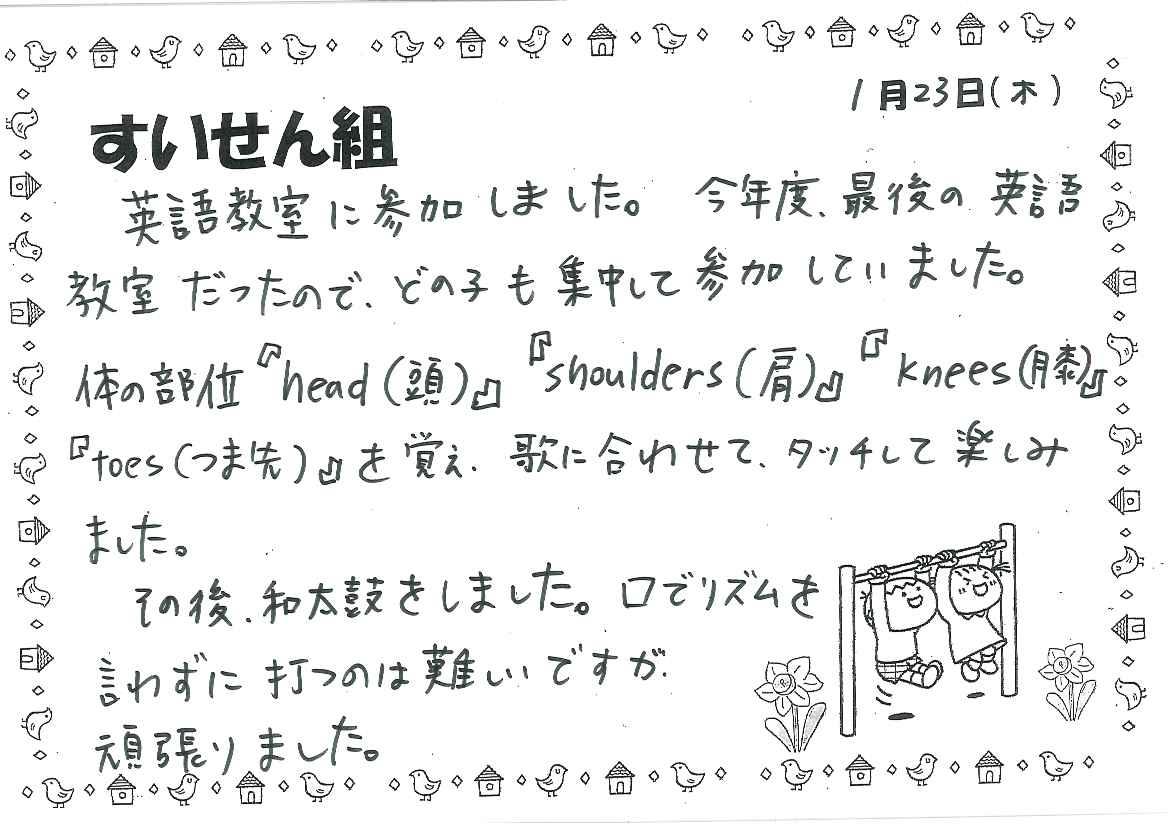 1月23日(木)
すいせん組
英語教室に参加しました。今年度、最後の英語
教室だったので、どの子も集中して参加していました。
体の部位『head(頭)』『shoulders(肩)』『knees(膝)』
『toes(つま先)』を覚え、歌に合わせて、タッチして楽しみ
ました。
その後、和太鼓をしました。口でリズムを
言わずに打つのは難しいですが、
頑張りました。